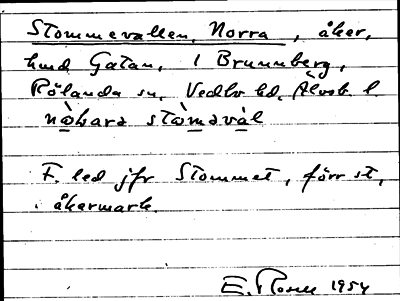 Stommevallen, Norra, åker,
hmd Gatan, 1 Brunnberg,
Rölanda sn, Vedbo hd, Älvsb. l.
nòṟara stòmavàl
F. led jfr Stommet, förr st,
åkermark.
E. Rosell 1954